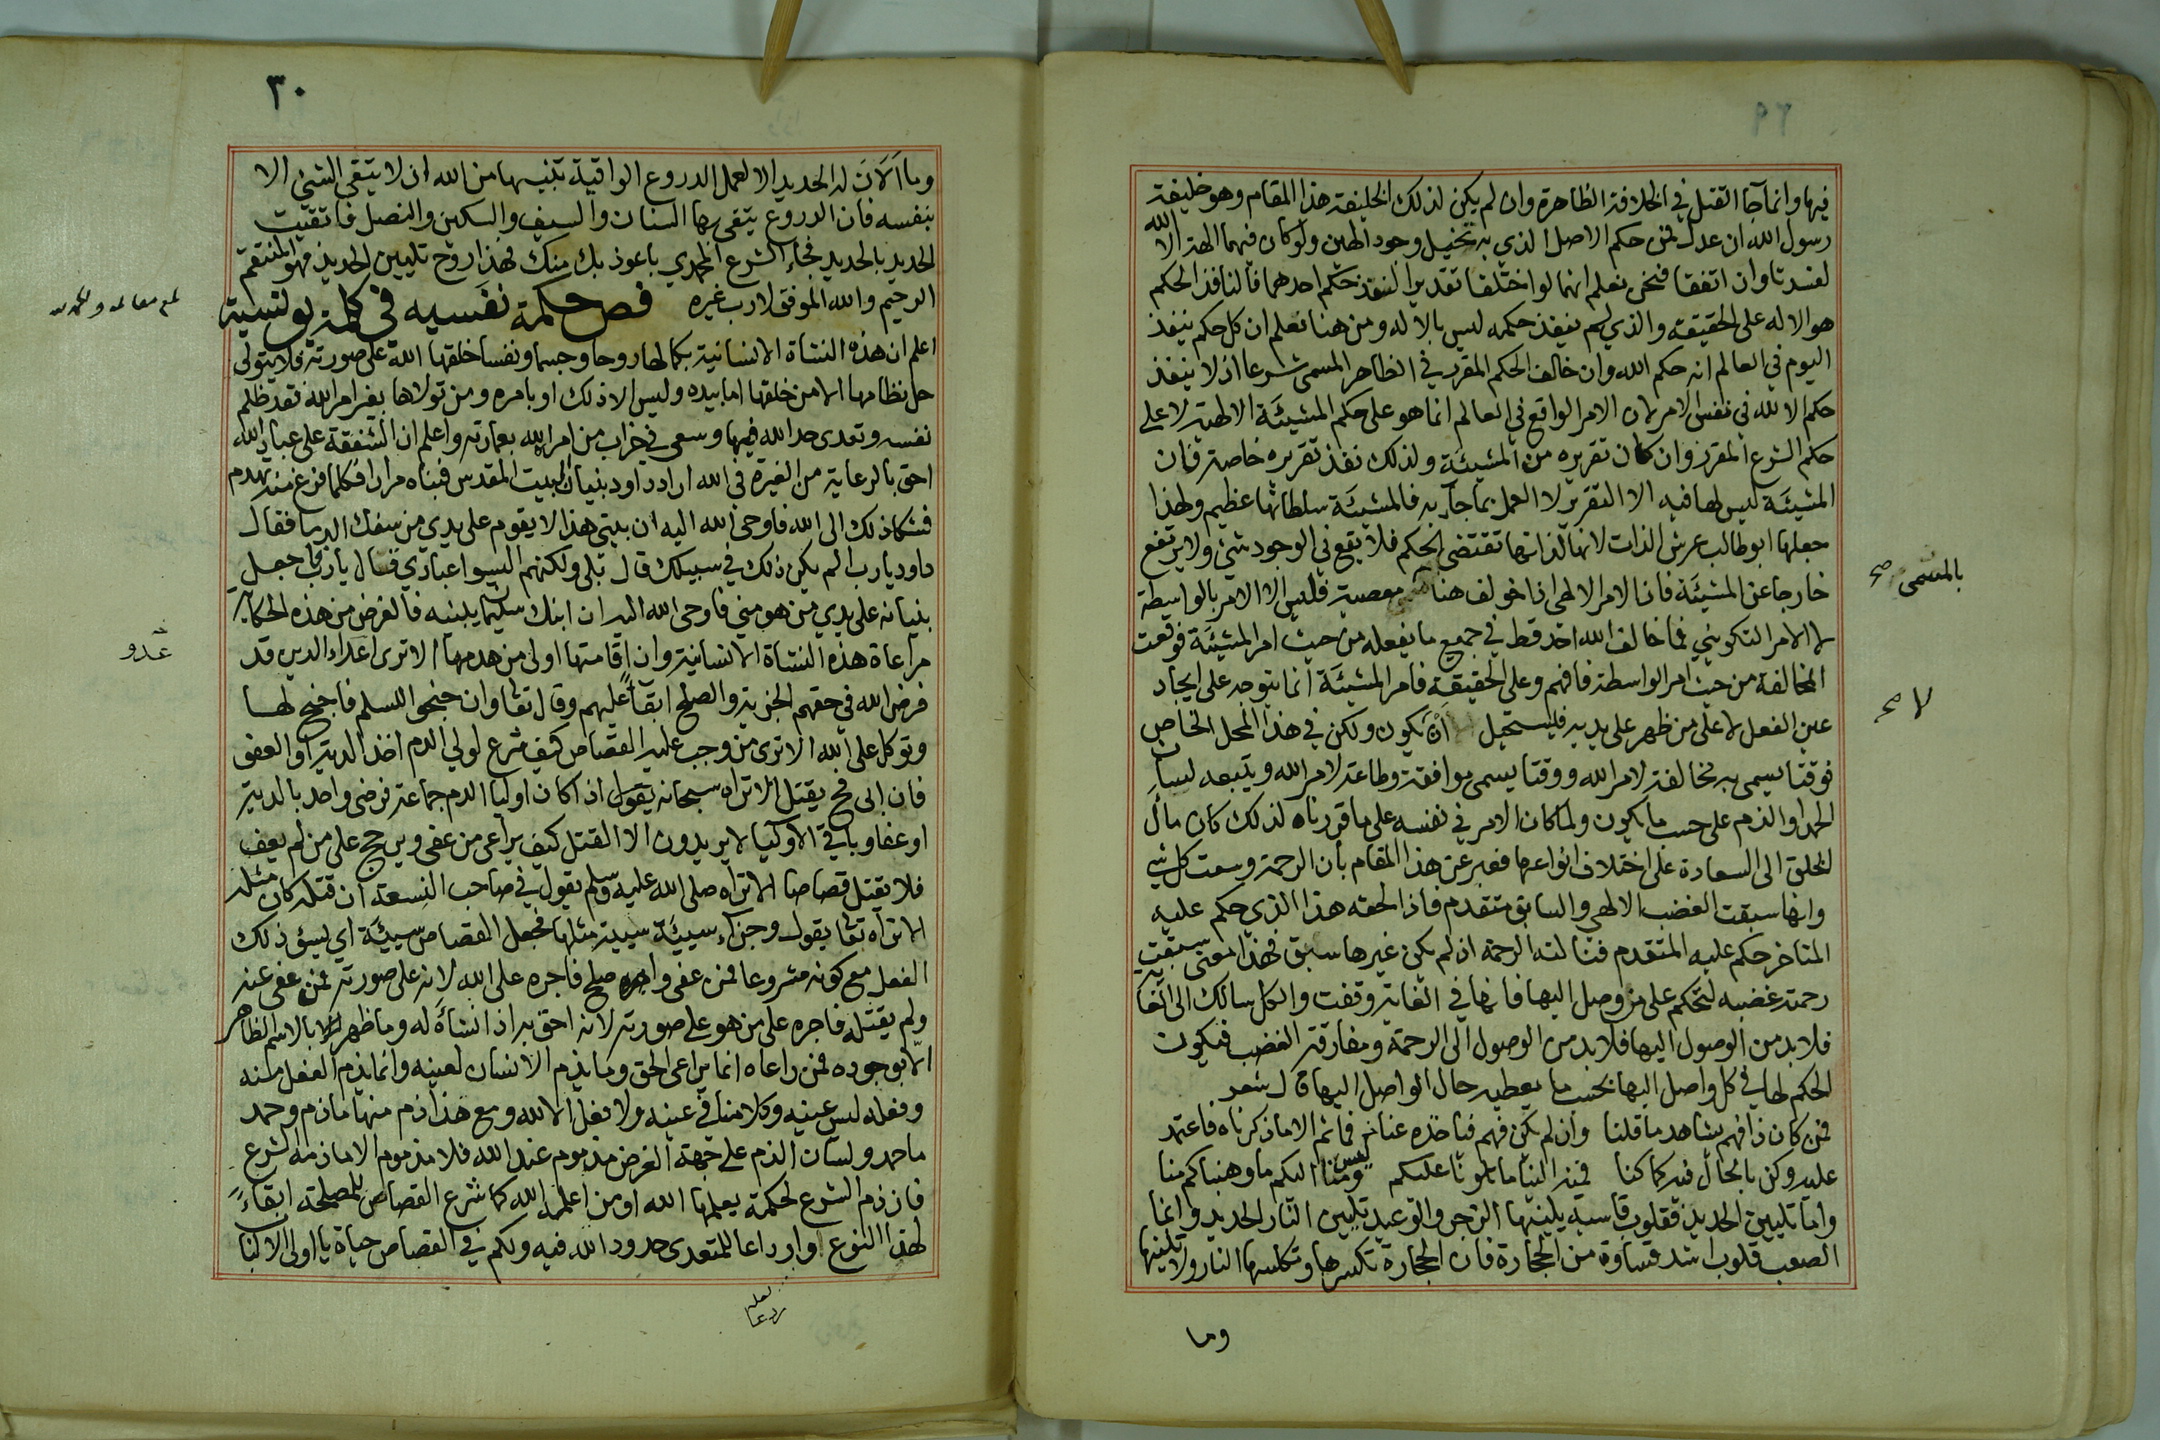 فيها وانما جآ القتل في الخلافة الظاهرة وان لم يكن لذلك الخليفة هذا المقام وهو خليفة
رسول الله ان عدل فمن حكم الاصل الذي به تخيل وجود الهين ولو كان فيهما الهة الا الله
لفسدتا وان اتفقا فنحن نعلم انهما لو اختلفا تقديرا لنفذ حكم احدهما فالنافذ الحكم
هو الاله على الحقيقة والذي لم ينفذ حكمه ليس باله ومن هنا نعلم ان كل حكم ينفذ
اليوم في العالم انه حكم الله وان خالف الحكم المقرر في الظاهر المسمى شرعا اذ لا ينفذ
حكم الا لله في نفس الامر لان الامر الواقع في العالم انما هو على حكم المشيئة الالهية لا على
حكم الشرع المقرر وان كان تقريره من المشيئة ولذلك نفذ تقريره خاصة فان
المشيئة ليس لها فيه الا التقرير لا العمل بما جآء به فالمشيئة سلطانها عظيم ولهذا
جعلها ابو طالب عرش الذات لانها لذاتها تقتضي الحكم فلا يقع في الوجود شئ ولا يرتفع
خارجا عن المشيئة فان الامر الالهي اذا خولف هنا معصية فليس الا الامر بالواسطة
بالمسمى صح
لا الامر التكويني فما خالف الله احد قط في جميع ما يفعله من حيث امر المشيئة فوقعت
المخالفة من حيث امر الواسطة فافهم وعلى الحقيقة فامر المشيئة انما يتوجه على ايجاد
عين الفعل لا على من ظهر على يديه فيستحيل ان يكون ولكن في هذا المحل الخاص
لا صح
فوقتا يسمى به مخالفة لامر الله ووقتا يسمى موافقة وطاعة لامر الله ويتبعه لسان
الحمد او الذم على حسب ما يكون ولما كان الامر في نفسه على ما قررناه لذلك كان مآل
الخلق الى السعادة على اختلاف انواعها فعبر عن هذا المقام بان الرحمة وسعت كل شي
وانها سبقت الغضب الالهي والسابق متقدم فاذا لحقه هذا الذي حكم عليه
المتاخر حكم عليه المتقدم فنالته الرحمة اذ لم يكن غيرها سبق فهذا معنى سبقت
رحمته غضبه لتحكم على من وصل اليها فانها في الغاية وقفت والكل سالك الى الغاية
فلا بد من الوصول اليها فلا بد من الوصول الى الرحمة ومفارقة الغضب فيكون
الحكم لها في كل واصل اليها بحسب ما يعطيه حال الواصل اليها قال شعر
فمن كان ذا فهم يشاهد ما قلنا وان لم يكن فهم فتاخذه عنا فما ثم الا ما ذكرناه فاعتمد
عليه وكن بالحال فيه كما كنا فمنه الينا ما تلونا عليكم ومنا اليكم ما وهبناكم منا
واما تليين الحديد فقلوب قاسية يلينها الزجر والوعيد تليين النار الحديد وانما
الصعب قلوب اشد قساوة من الحجارة فان الحجارة تكسرها وتكلسها النار ولا تلينها
وما
٣٠
وما آلآن له الحديد الا لعمل الدروع الواقية تنبيها من الله ان لا يتقى الشئ الا
بنفسه فان الدروع يتقى بها السنان والسيف والسكين والنصل فاتقيت
الحديد بالحديد فجآء الشرع المحمدي باعوذ بك منك فهذا روح تليين الحديد فهو المنتقم
الرحيم والله الموفق لا رب غيره فص حكمة نفسيه في كلمة يونسية
اعلم ان هذه النشاة الانسانية بكمالها روحا وجسما ونفسا خلقها الله على صورته فلا يتولى
حل نظامها الا من خلقها اما بيده وليس الا ذلك او بامره ومن تولاها بغير امر الله فقد ظلم
نفسه وتعدى حد الله فيها وسعى في خراب من امر الله بعمارته واعلم ان الشفقة على عباد الله
احق بالرعاية من الغيرة في الله اراد داود بنيان البيت المقدس فبناه مرارا فكلما فرغ منه تهدم
فشكا ذلك الى الله فاوحى الله اليه ان بيتي هذا لا يقوم على يدي من سفك الدما فقال
داود يا رب الم يكن ذلك في سبيلك قال بلى ولكنهم اليسوا عبادي فقال يا رب فاجعل
بنيانه على يدي من هو مني فاوحى الله اليه ان ابنك سليمان يبنيه فالغرض من هذه الحكاية
مراعاة هذه النشاة الانسانية وان اقامتها اولى من هدمها الا ترى اعداء الدين قد
عدو
فرض الله في حقهم الجزية والصلح ابقآء عليهم وقال تعا وان جنحوا للسلم فاجنح لها
وتوكل على الله الا ترى من وجب عليه القصاص كيف شرع لولي الدم اخذ الدية او العفو
فان ابى فح يقتل الا تراه سبحانه يقول اذا كان اوليا الدم جماعة فرضى واحد بالدية
او عفا وباقي الاوليآ لا يريدون الا القتل كيف يراعى من عفى ويرجح على من لم يعف
فلا يقتل قصاصا الا تراه صلى الله عليه وسلم يقول في صاحب النسعة ان قتله كان مثله
الا تراه تعا يقول وجزاء سيئة سيئة مثلها فجعل القصاص سيئة اي يسؤ ذلك
الفعل مع كونه مشروعا فمن عفى واصلح فاجره على الله لانه على صورته فمن عفى عنه
ولم يقتله فاجره على من هو على صورته لانه احق به اذ انشاه له وما ظهر بالاسم الظاهر
الا بوجوده فمن راعاه انما يراعى الحق وما يذم الانسان لعينه وانما يذم الفعل منه
وفعله ليس عينه وكلامنا في عينه ولا فعل الا لله ومع هذا ذم منها ما ذم وحمد
ما حمد ولسان الذم على جهة الغرض مذموم عند الله فلا مذموم الا ما ذمه الشرع
فان ذم الشرع لحكمة يعلمها الله او من اعلمه الله كما شرع القصاص للمصلحة ابقاءً
لهذا النوع اوارداعا للمتعدى حدود الله فيه ولكم في القصاص حياة يا اولى الالباب
لعله
ردعا